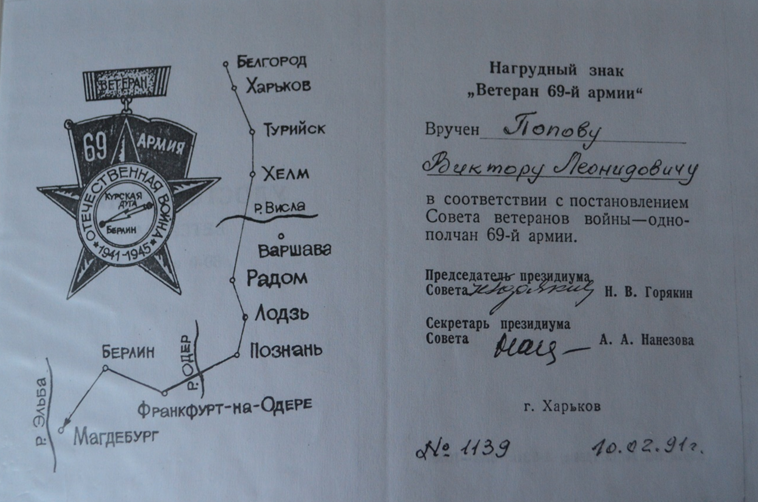 ВЕТЕРАН
69 АРМИЯ
ОТЕЧЕСТВЕННАЯ ВОЙНА
КУРСКАЯ
ДУГА
БЕРЛИН
*1941-1945*
БЕЛГОРОД
ХАРЬКОВ
ТУРИЙСК
ХЕЛМ
р. ВИСЛА
ВАРШАВА
РАДОМ
ЛОДЗЬ
ПОЗНАНЬ
р. ОДЕР
БЕРЛИН
ФРАНКФУРТ-НА-ОДЕРЕ
р. ЭЛЬБА
МАГДЕБУРГ
Нагрудный знак
„Ветеран 69-й армии"
Вручен Попову
Виктору Леонидовичу
в соответствии с постановлением
Совета ветеранов войны—одно-
полчан 69-й армии.
Председатель президиума
Совета Н. В. Горякин
Секретарь президиума
Совета А. А. Нанезова
г. Харьков
№ 1139 10.02.91г.